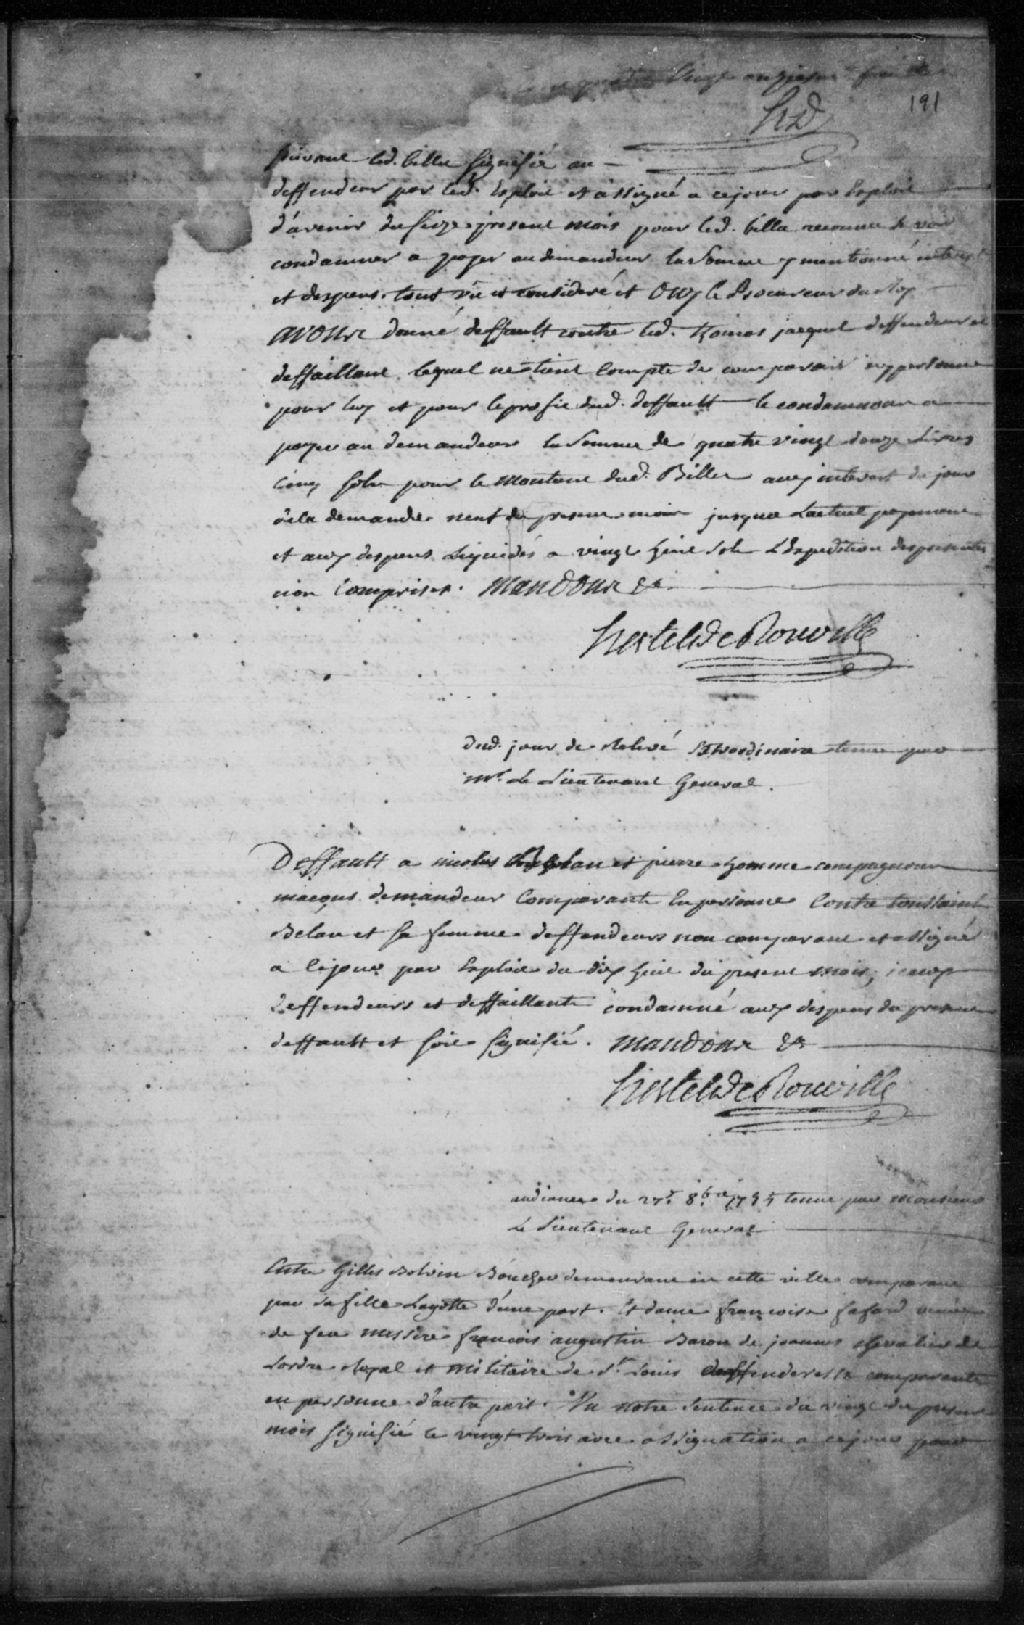 Vingt onzieme feuillet
191
HD
suivant led. billet signifié au
deffendeur par led. Exploit et assigné a ce jour par Exploit
d'avenir du seize present mois pour led. billet reconnu se voir
condamner a payer au demandeur la somme y mentionné interest
et despens. tout vû et consideré et Ouy le Procureur du Roy
avons donné deffault contre led. jacquet deffendeur et
deffaillant lequel ne tient compte de comparoir ny personne
pour luy et pour le profit dud. deffault le condamnons a
payer au demandeur la somme de quatre vingt douze Livres
Cinq sols pour le montant dud. Billet aux interest du jour
de la demande neuf du present mois jusqua Lactuel payement
et aux despens Liquidés a vingt huit sols L'Expedition des presentes
non Comprises. Mandons &a
Hertel de Rouville
Dud. jour de Relevé Extraordinaire tenue par
Mr. Le Lieutenant General.
Deffault a nicolas et pierre homme compagnons
maçons demandeur Comparants En personne Contre toussaint
Belan et sa femme deffendeurs non comparant et assigné
a ce jour par Exploit du dix huit du present mois; iceux
deffendeurs et deffaillants condamné aux despens du present
deffault et soit signifié. Mandons &a
Hertel de Rouville
audiance du 27e. 8bre 1755 tenue par monsieur
Le Lieutenant General
Entre Gilles Bolvin Boucher demeurant en cette ville comparant
par sa fille Layotte d'une part. Et dame françoise fafard veuve
de feu Messire françois augustin Baron de joannes chevalier de
Lordre Royal et Militaire de St. Louis deffenderesse comparante
en personne d'autre part. Vu notre Sentence du vingt du present
mois signifié le vingt trois avec assignation a ce jour pour